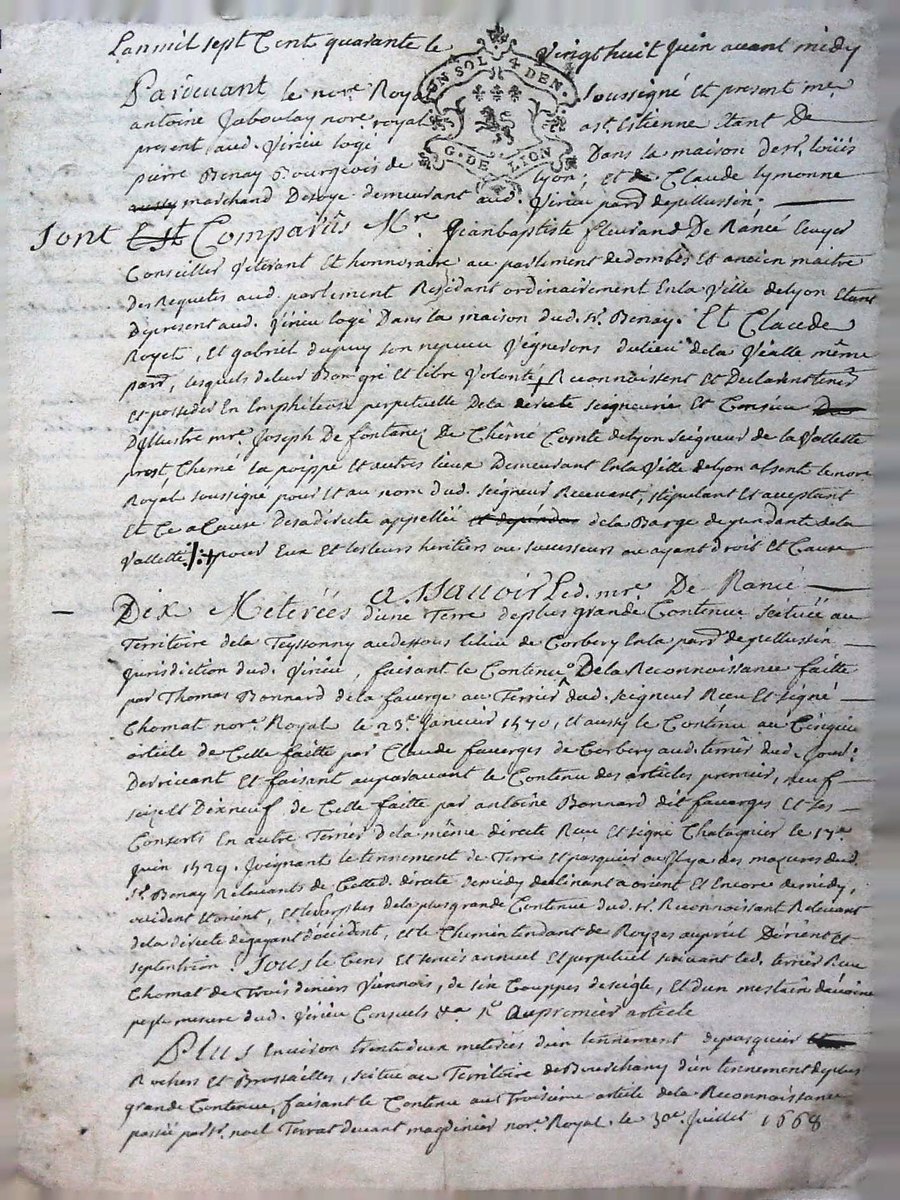 Lanmil sept Cent quarante le vingthuit Juin avant midy
UN SOL 4 DEN.
G. DE LION
Pardevant le nore. Royal soussigné et present me.
antoine Jaboulay nore. royal a st. Etienne Etant De
present aud. Virieu logé Dans la maison de sr. loüis
pierre Benay Bourgeois de lyon; et Claude Lymonne
marchand De soye demeurant aud. Virieu parr. de pellussin:
sont Comparûs Mre. Jeanbaptiste fleurand De Rancé Ecuyer
Conseiller Veterant Et honnoraire au parlement de dombes Et ancien maitre
des Requetes aud. parlement Residant ordinairement En la Ville de lyon Etant
de present aud. Virieu logé Dans la maison dud. sr. Benay. Et Claude
Royet, Et gabriel dupuy son nepveu Vignerons du lieu de la Vealle même
parr., lesquels de leur Bon gré Et libre Volonté Reconnoissent Et Declarent tenir
Et posseder En Emphiteose perpetuelle de la directe seigneurie Et Censive
D'illustre mre. Joseph De fontanez De Chêmé Comte de lyon seigneur de la Vallette
prest, Chemé la poippe et autres lieux Demeurant En la Ville de lyon absent le nore.
Royal soussigné pour Et au nom dud. seigneur Recevant, stipulant Et acceptant
Et Ce a Cause de sa directe appellée de la Barge dependante de la
Vallette pour Eux Et les leurs heritiers ou successeurs ou ayant droit Et Cause
assavoir Led. mre. De Rancé
Dix Meterées d'une Terre de plus grande Contenue scituée au
Territoire de la Teyssonny au dessous le lieu de Corbery En la parr. de pellussin
Jurisdiction dud. Virieu, faisant le Contenu De la Reconnoissance faitte
par Thomas Bonnard de la faverge au Terrier dud. seigneur Receu Et signé
Chomat nore. Royal le 23e. Janvier 1570, Et aussy le Contenu au Cinqième
article de Celle faitte par Claude faverges de Corbery aud. terrier dud.
Derrivant Et faisant auparavant le Contenu des articles premier, neuf
seize Et Dixneuf de Celle faitte par antoine Bonnard dit faverges Et ses
Consorts En autre Terrier de la même directe Receu Et signé Chalagnier le
Juin 1529. Joignant le tennement de Terre Et pasquier ou Il y a des mazures dud.
sr. Benay Relevants de Cetted. directe de midy declinant a orient Et Encore de midy,
occident Et orient, Et le surplus de la plus grande Contenue dud. sr. Reconnoissant Relevant
de la directe de gayant d'occident, et le Chemin tendant de Royzes au Dorient Et
septentrion. Sous le Cens Et servis annuel Et perpetuel suivant led. terrier Receu
Chomat de Trois deniers Viennois, de six Couppes de seigle, Et d'un mestain d'avoine
mesure dud. Virieu Censuels au premier article
Plus Environ trente deux meterées d'un tennement de pasquier
Rochers Et Brossailles, scitué au Territoire de Bourchany d'un tennement de plus
grande Contenue, faisant le Contenu au Troisième article de la Reconnoissance
passée par sr. noel Terrat devant magdinier nore. Royal. le 30e. Juillet 1668